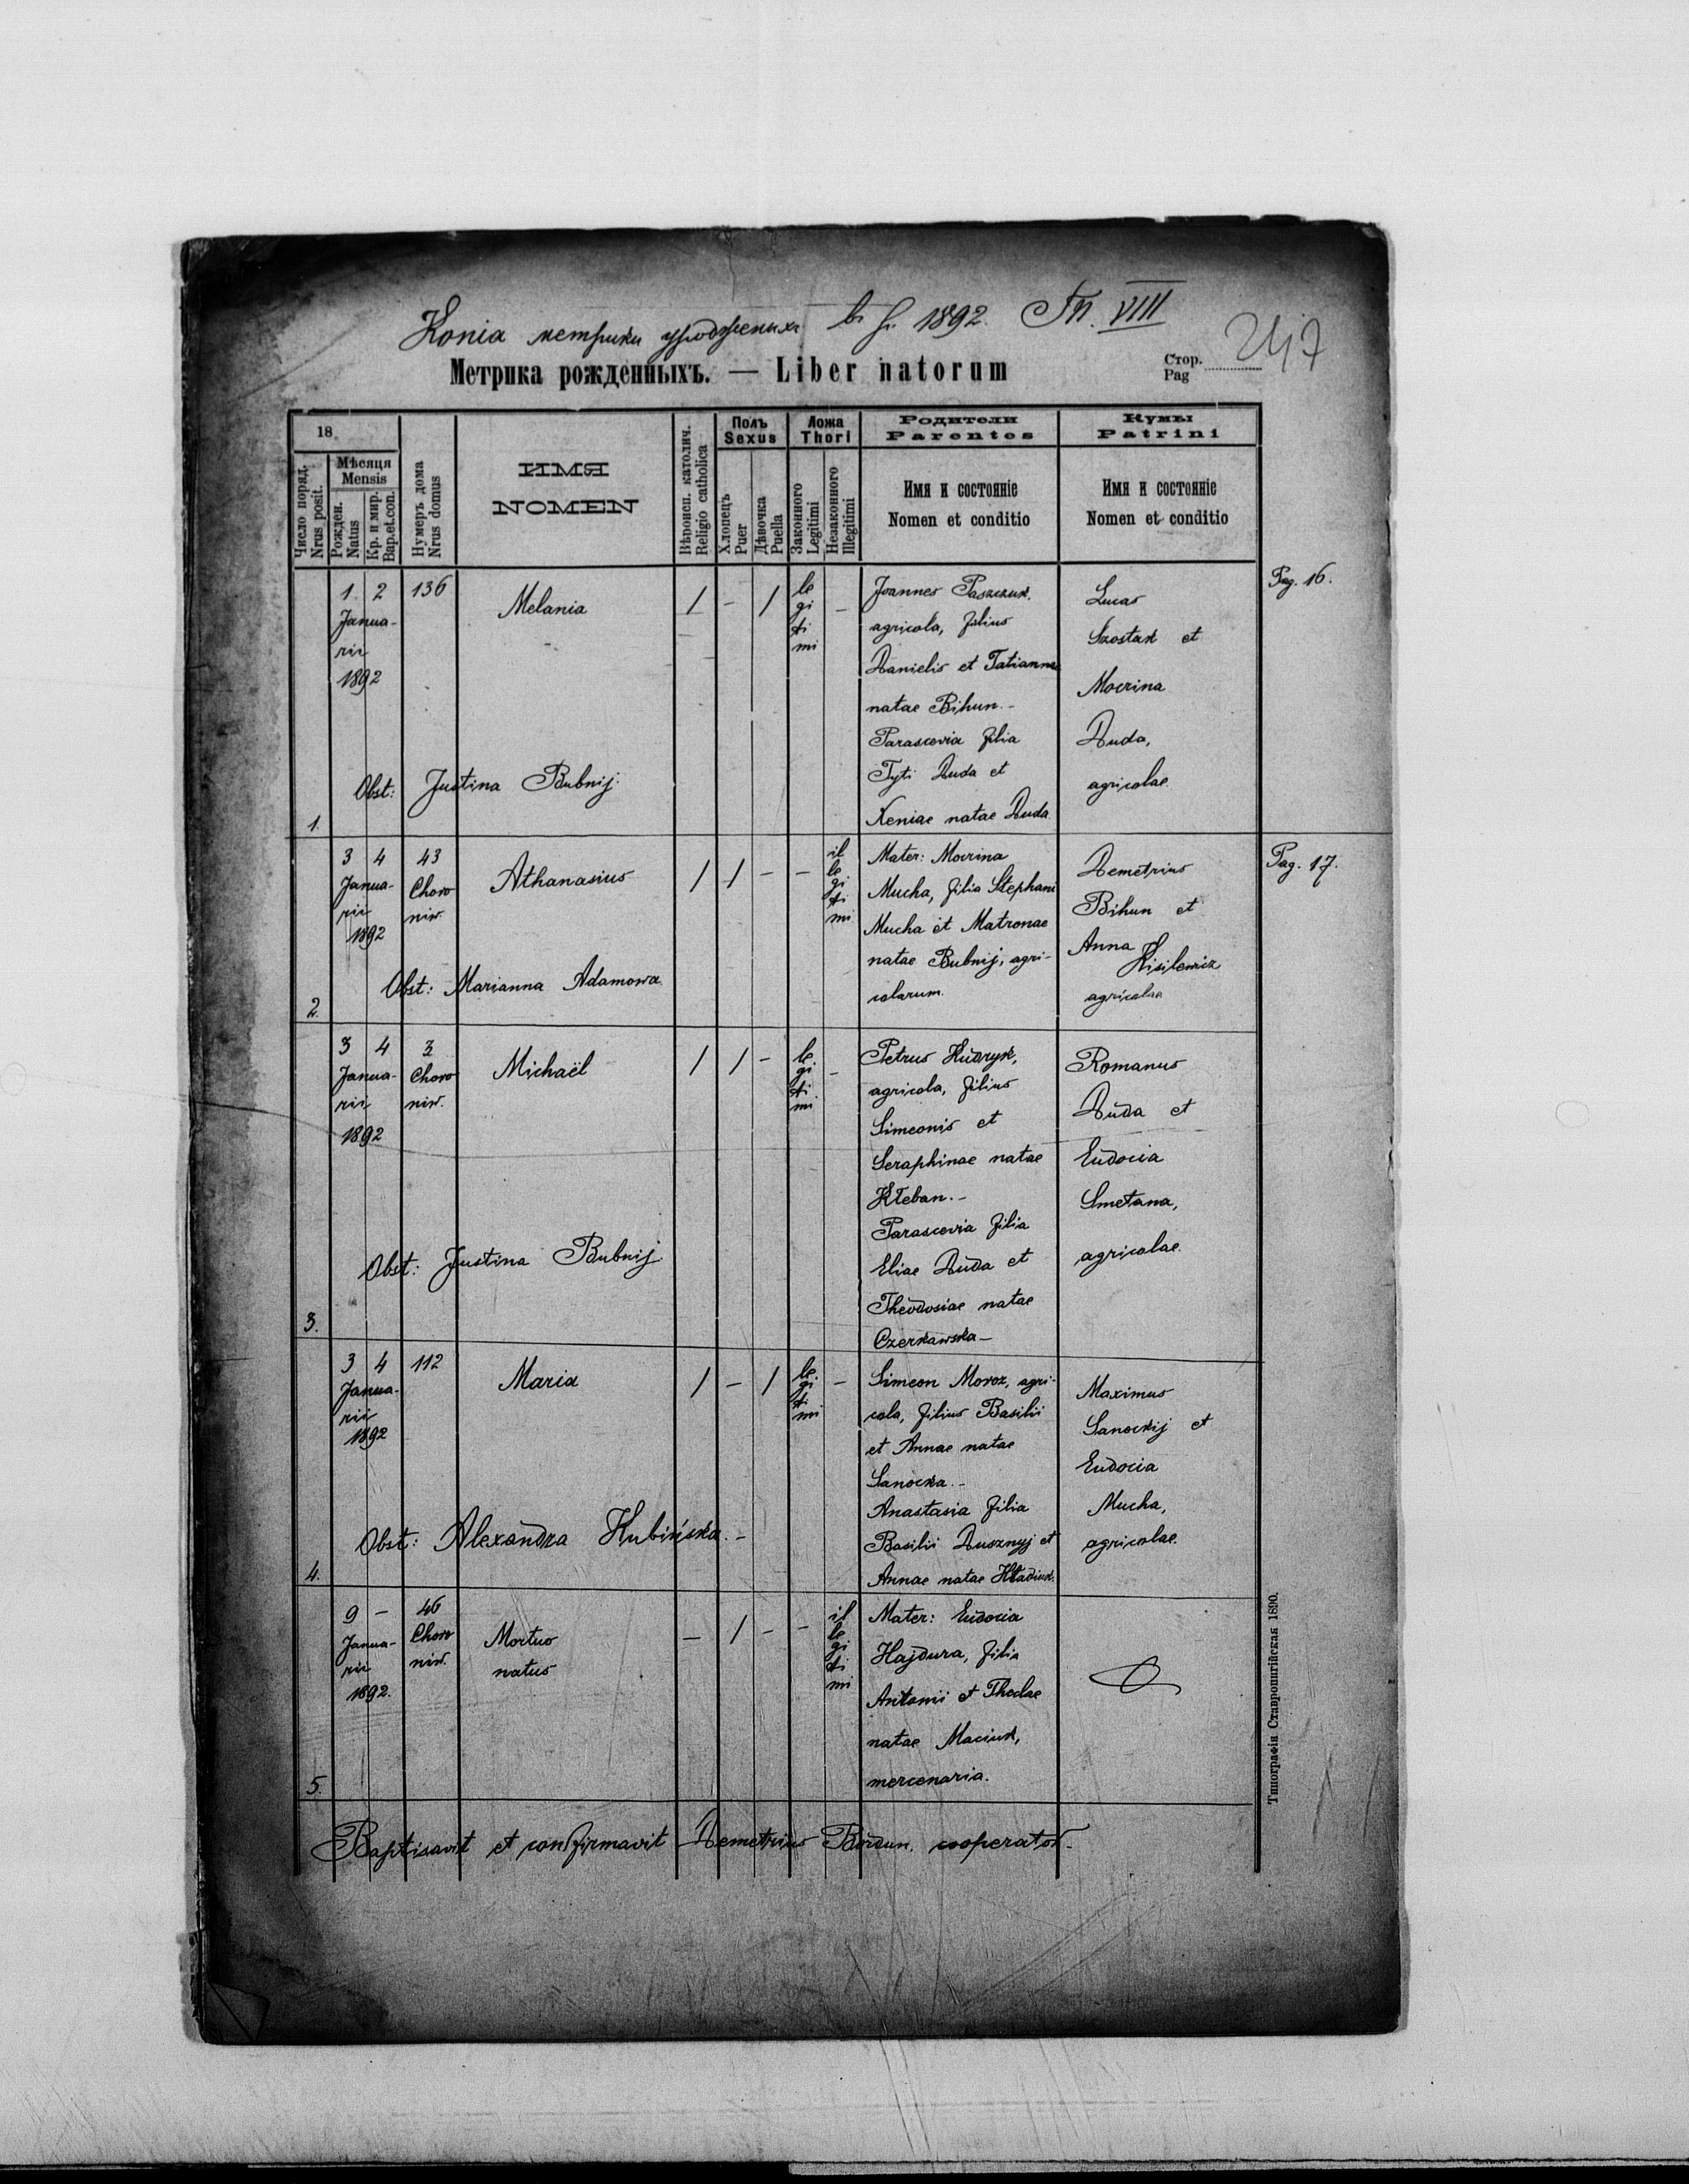 Копія метрики уродженихъ в р. 1892. Тп. VIII
Метрика рожденныхъ. — Liber natorum
Стор.
Pag
18
Число поряд.
Nrus posit.
Мѣсяця
Mensis
Рожден.
Natus
Кр. и мир.
Bap.et.con.
Нумеръ дома
Nrus domus
ИМЯ
NOMEN
Вѣроисп. католич.
Religio catholica
Полъ
Sexus
Хлопецъ
Puer
Дѣвочка
Puella
Ложа
Thori
Законного
Legitimi
Незаконного
Illegitimi
Родители
Parentes
Имя и состояніе
Nomen et conditio
Кумы
Patrini
Имя и состояніе
Nomen et conditio
1.
1 2
Janua-
rii
1892
136
Melania
/ - /
le
gi
ti
mi
-
Joannes Paszczuk,
agricola, filius
Danielis et Tatiannae
natae Bihun.-
Parascevia filia
Tyti Duda et
Xeniae natae Duda
Lucas
Szostak et
Mocrina
Duda,
agricolae.
Pag. 16.
Obst: Justina Bubnij.
2.
3 4
Janua-
rii
1892
43
Choro
niw.
Athanasius
/ / - -
il
le
gi
ti
mi
Mater: Mocrina
Mucha, filia Stephani
Mucha et Matronae
natae Bubnij, agri-
colarum.
Demetrius
Bihun et
Anna
Kisilewicz
agricolae
Pag. 17.
Obst: Marianna Adamowa.
3.
3 4
Janua-
rii
1892
3
Choro
niw.
Michaël
/ / -
le
gi
ti
mi
-
Petrus Kudryk,
agricola, filius
Simeonis et
Seraphinae natae
Kłeban.-
Parascevia filia
Eliae Duda et
Theodosiae natae
Czerkawska-
Romanus
Duda et
Eudocia
Smetana,
agricolae.
Obst: Justina Bubnij
4.
3 4
Janua-
rii
1892
112
Maria
/ - /
le
gi
ti
mi
-
Simeon Moroz, agri-
cola, filius Basilii
et Annae natae
Sanocka.-
Anastasia filia
Basilii Dusznyj et
Annae natae Hładiuk.
Maximus
Sanockij et
Eudocia
Mucha,
agricolae.
Obst: Alexandra Kubińska.-
5.
9 -
Janua-
rii
1892.
46
Choro
niw.
Mortuo
natus
- / - -
il
le
gi
ti
mi
Mater: Eudocia
Hajdura, filia
Antonii et Theclae
natae Maciuk,
mercenaria.
Baptisavit et confirmavit Demetrius Bordun, cooperator.
Типографія Ставропигійская 1890.